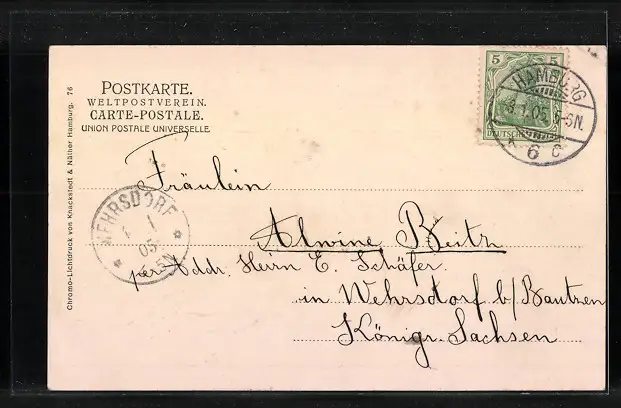 POSTKARTE.
WELTPOSTVEREIN.
CARTE-POSTALE.
UNION POSTALE UNIVERSELLE.
5 5
DEUTSCHES
HAMBURG
05. 5-6N.
6 c
Fräulein
WEHRSDORF
05
Alwine Beitz
per Addr. Herrn E. Schäfer
in Wehrsdorf b/Bautzen
Königr. Sachsen
Chromo-Lichtdruck von Knackstedt & Näther Hamburg. 76